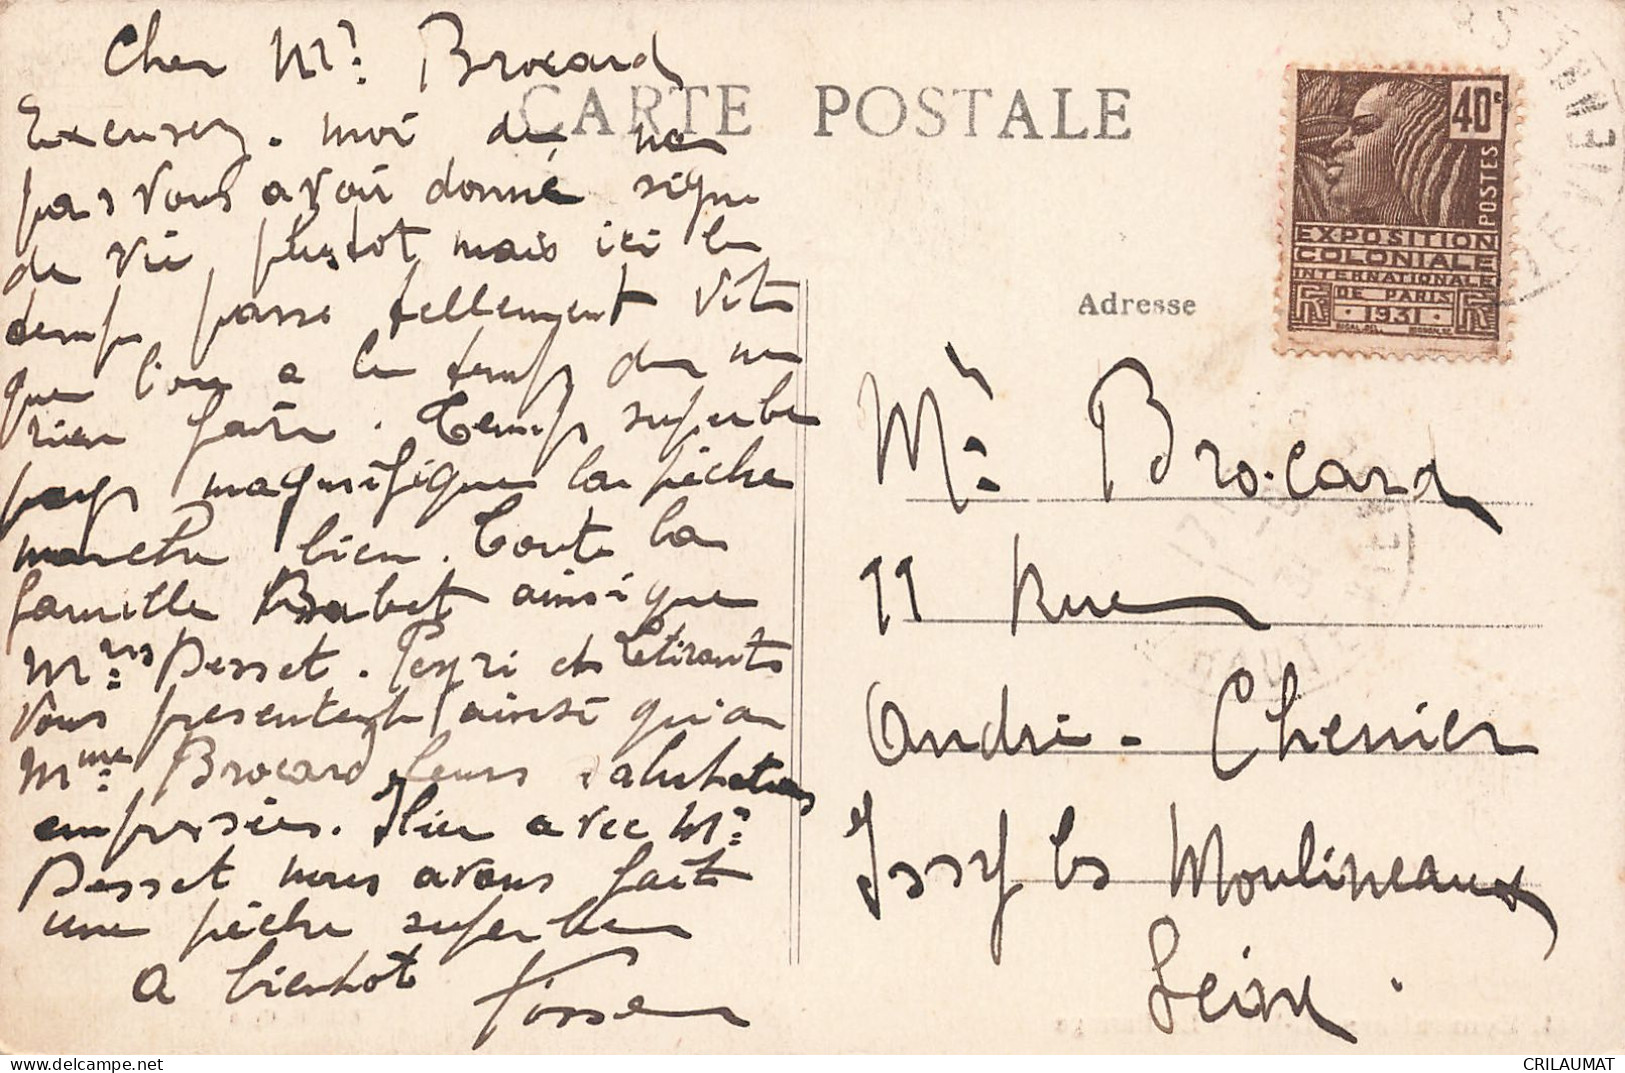 Cher Mr: Brocard
CARTE POSTALE
Excusez-moi de ne
pas vous avoir donné signe
de vie plustot mais ici le
temps passe tellement vite
que l'on a le temps de ne
rien faire. Temps superbe
pays magnifique la pêche
marche bien. Toute la
famille Babet ainsi que
Mrs: Desset. Peyri et
vous présentent ainsi qu'a
Mme Brocard leurs salutations
empressées. Hier avec Mr:
Desset nous avons fait
une pêche superbe
A bientot
40c
POSTES
EXPOSITION
COLONIALE
INTERNATIONALE
DE PARIS
1931
Adresse
Mr: Brocard
11 Rue
André-Chenier
Issy les Moulineaux
Seine.
CRILAUMAT